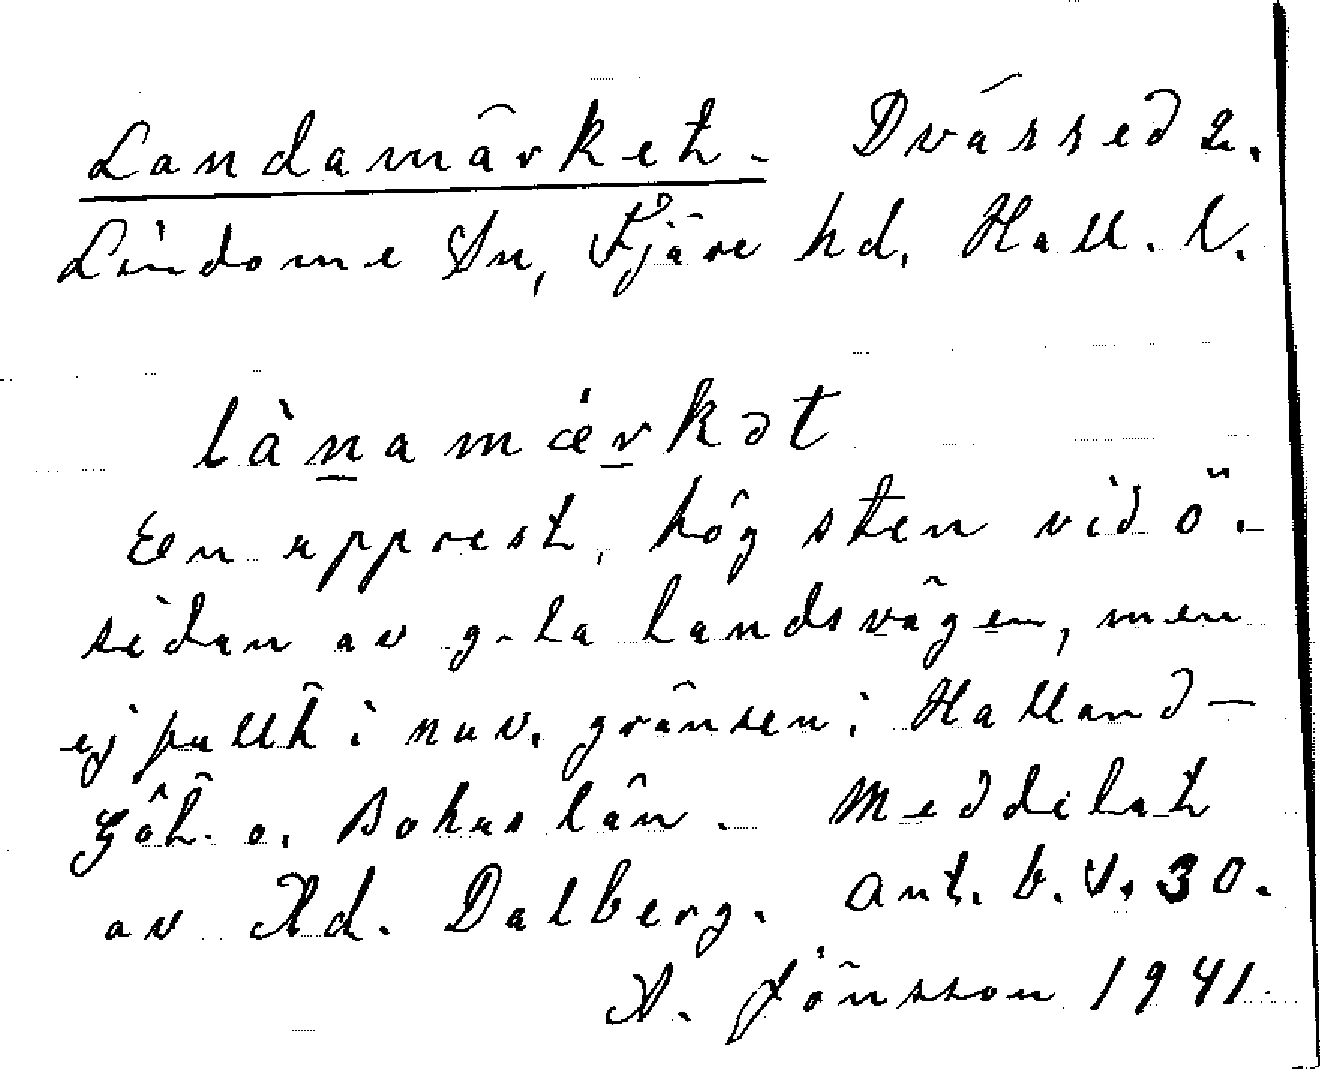 Landamärket. Dvássed 2.
Lindome Sn, Fjäre hd, Hall. l.
lànamǽrkət
En upprest, hög sten vid ö.
sidan av g-la landsvägen, men
ej fullt i nuv. gränsen i Halland-
Göt. o. Bohuslän. Meddelat
av Ad. Dalberg. Ant. b. s. 30.
A. Jönsson 1941